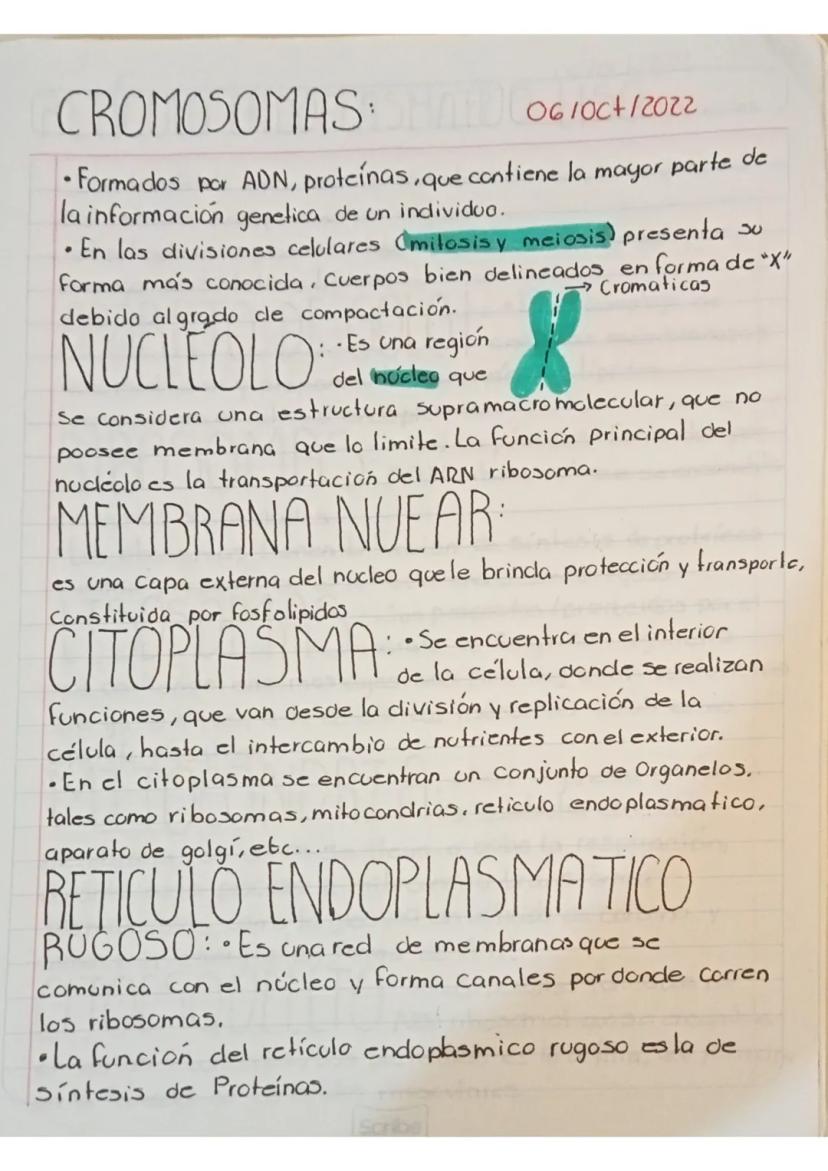 CROMOSOMAS:
06/Oct/2022
• Formados por ADN, proteínas, que contiene la mayor parte de
la información genetica de un individuo.
• En las divisiones celulares (mitosis y meiosis) presenta su
forma más conocida, cuerpos bien delineados en forma de "X"
→ Cromaticas
debido al grado de compactación.
NUCLÉOLO: • Es una región
del núcleo que
se considera una estructura supramacromolecular, que no
poosee membrana que lo limite. La función principal del
nucléolo es la transportación del ARN ribosoma.
MEMBRANA NUEAR:
es una capa externa del nucleo que le brinda protección y transporte,
constituida por fosfolipidos
CITOPLASMA: • Se encuentra en el interior
de la célula, donde se realizan
funciones, que van desde la división y replicación de la
célula, hasta el intercambio de nutrientes con el exterior.
• En el citoplasma se encuentran un conjunto de Organelos,
tales como ribosomas, mitocondrias, reticulo endoplasmatico,
aparato de golgí, etc...
RETICULO ENDOPLASMATICO
RUGOSO: • Es una red de membranas que se
comunica con el núcleo y forma canales por donde corren
los ribosomas.
• La función del retículo endoplasmico rugoso es la de
síntesis de Proteínas.
Scribe